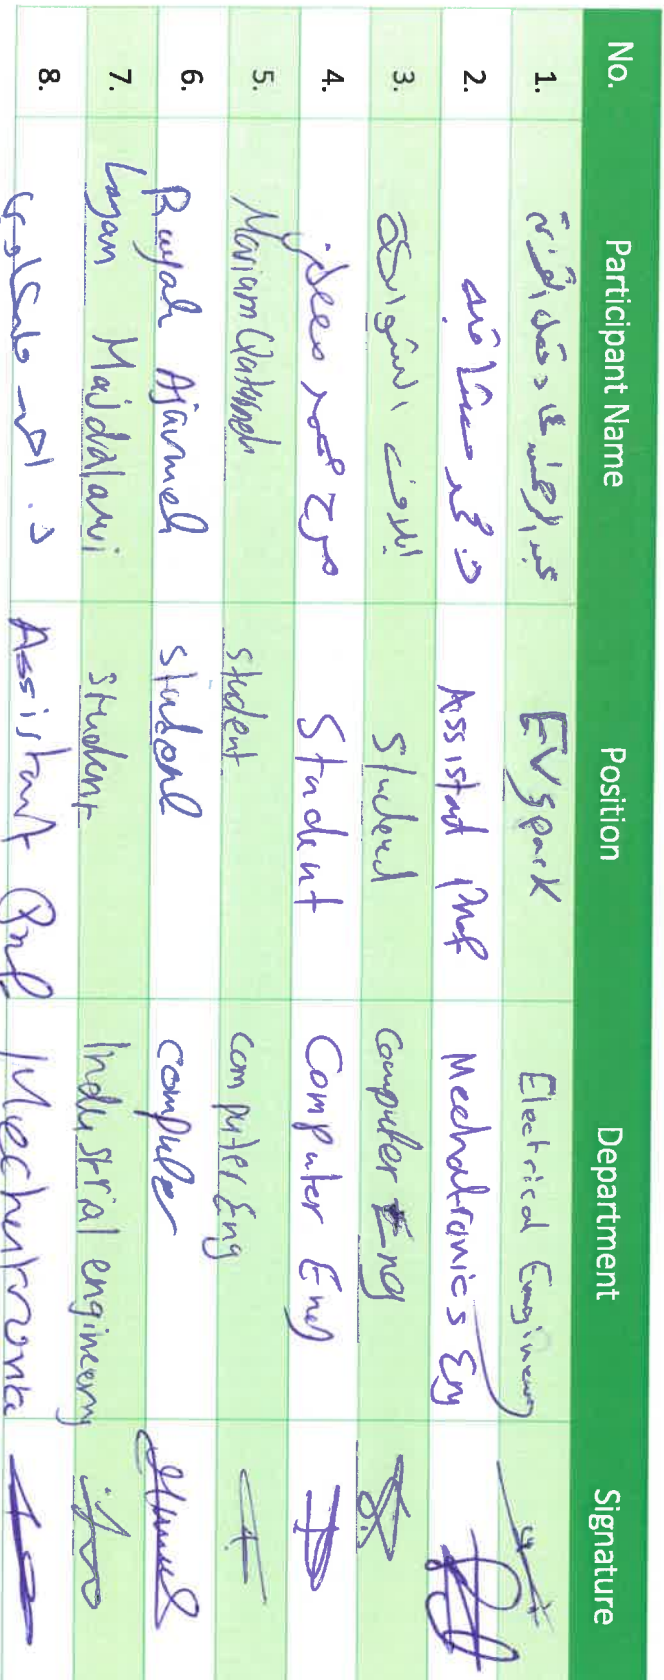 No. Participant Name Position Department Signature
1. EV spark Electrical Engineering
2. د. محمد Assistant Prof Mechatronics Eng
3. ايلاف الشوابكة Student Computer Eng
4. مرح محمد Student Computer Eng
5. Mariam Student Computer Eng
6. Ruyah Ajarmeh student computer
7. Layan Majdalawi student Industrial engineering
8. د. احمد Assistant Prof. Mechatronics